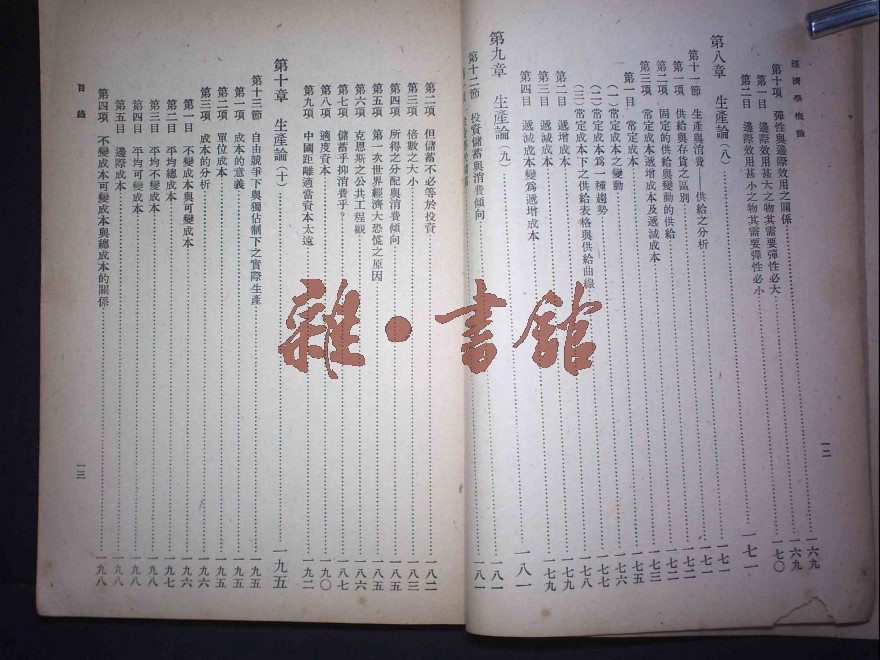 經濟學概論
第十項 彈性與邊際效用之關係……一六九
第一目 邊際效用甚大之物其需要彈性必大……一六九
第二目 邊際效用甚小之物其需要彈性必小……一七〇
第八章 生產論（八）……一七一
第十一節 生產與消費——供給之分析……一七一
第一項 供給與存貨之區別……一七一
第二項 固定的供給與變動的供給……一七二
第三項 常定成本遞增成本及遞減成本……一七三
第一目 常定成本……一七五
（一）常定成本之變動……一七六
（二）常定成本為一種趨勢……一七七
（三）常定成本下之供給表格與供給曲線……一七八
第二目 遞增成本……一七九
第三目 遞減成本……一七九
第四目 遞減成本變為遞增成本……一八一
第九章 生產論（九）……一八一
第十二節 投資儲蓄與消費傾向……一八一
一二
第二項 但儲蓄不必等於投資……一八二
第三項 倍數之大小……一八三
第四項 所得之分配與消費傾向……一八五
第五項 第一次世界經濟大恐慌之原因……一八五
第六項 克恩斯之公共工程觀……一八六
第七項 儲蓄乎抑消費乎？……一八七
第八項 適度資本……一九〇
第九項 中國距離適當資本太遠……一九二
第十章 生產論（十）……一九五
第十三節 自由競爭下與獨佔制下之實際生產……一九五
第一項 成本的意義……一九五
第二項 單位成本……一九五
第三項 成本的分析……一九六
第一目 不變成本與可變成本……一九六
第二目 平均總成本……一九七
第三目 平均不變成本……一九八
第四目 平均可變成本……一九八
第五目 邊際成本……一九八
第四項 不變成本可變成本與總成本的關係……一九八
目錄
一三
雜·書館